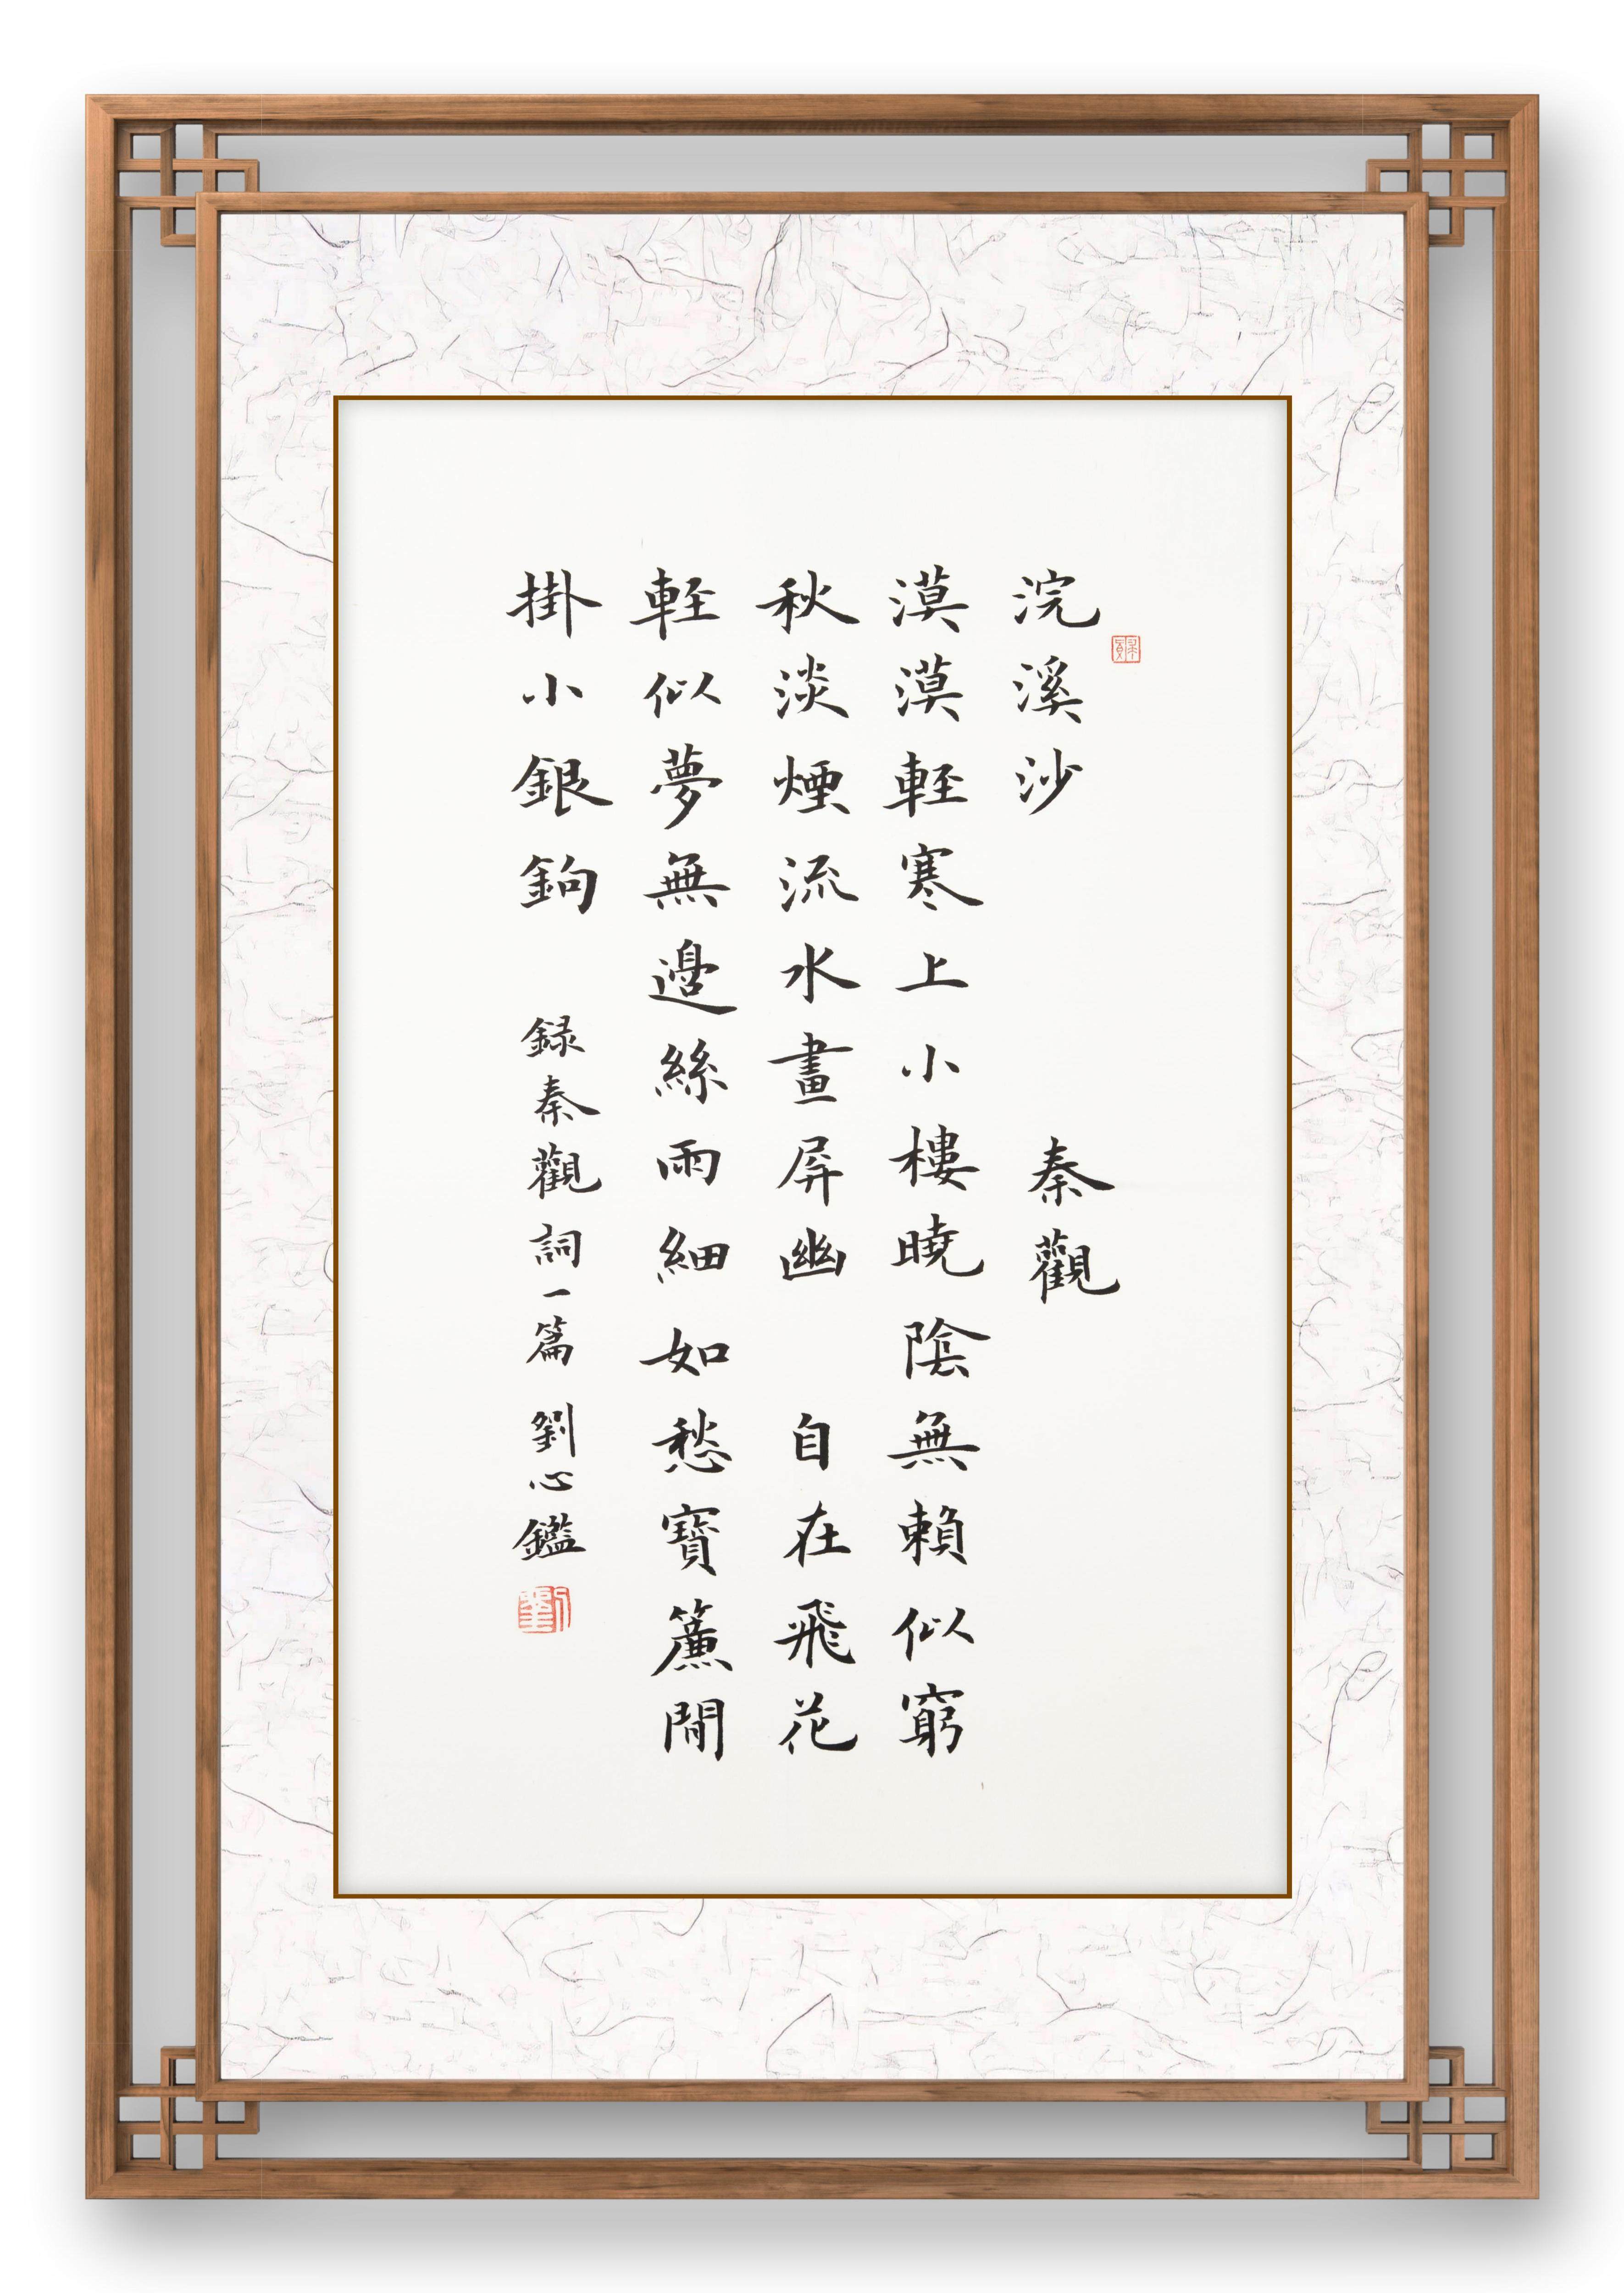 浣溪沙 秦觀
漠漠軽寒上小樓曉陰無賴似窮
秋淡煙流水畫屏幽 自在飛花
軽似夢無邊絲雨細如愁寶簾閒
掛小銀鉤 録秦觀詞一篇 劉心鑑
劉